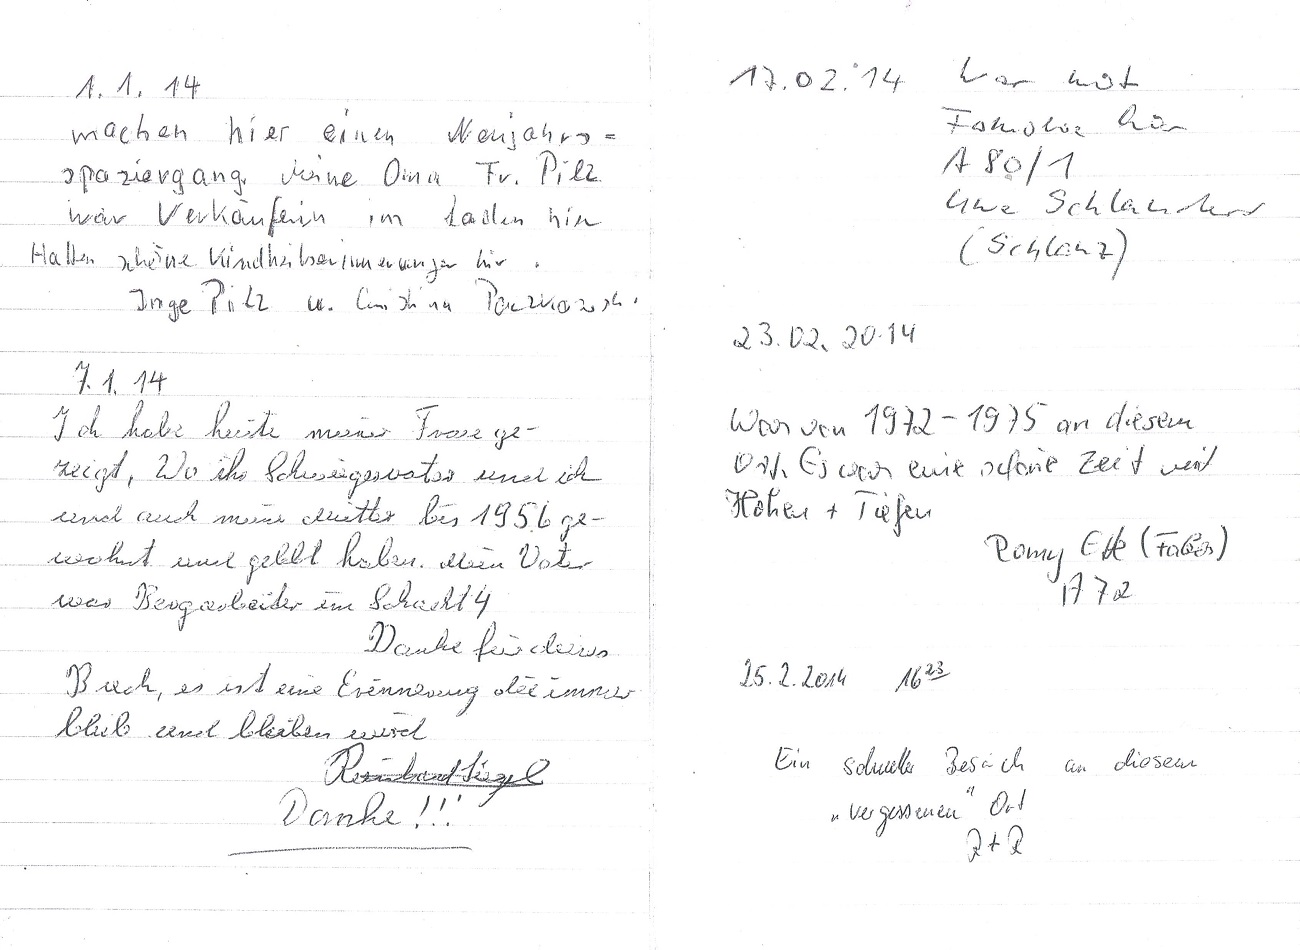 1.1.14
machen hier einen Neujahrs=
spaziergang. Meine Oma Fr. Pilz
war Verkäuferin im Laden hier
Hatten schöne Kindheitserinnerungen hier.
Inge Pilz u. Christina
7.1.14
Ich habe heute meiner Frau ge-
zeigt, Wo ihr Schwiegervater und ich
und auch meine Mutter bis 1956 ge-
wohnt und gelebt haben. Mein Vater
war Bergarbeiter im Schacht 4
Danke für dieses
Buch, es ist eine Erinnerung die immer
blieb und bleiben wird
Reinhard Siegel
Danke!!!
17.02.'14 War mit
Familie hier
A 80/1
Uwe
(Schlanz)
23.02.2014
War von 1972-1975 an diesem
Ort. Es war eine schöne Zeit mit
Höhen + Tiefen
Romy (Faber)
1772
25.2.2014 16 23
Ein schneller Besuch an diesem
"vergessenen" Ort
R+R